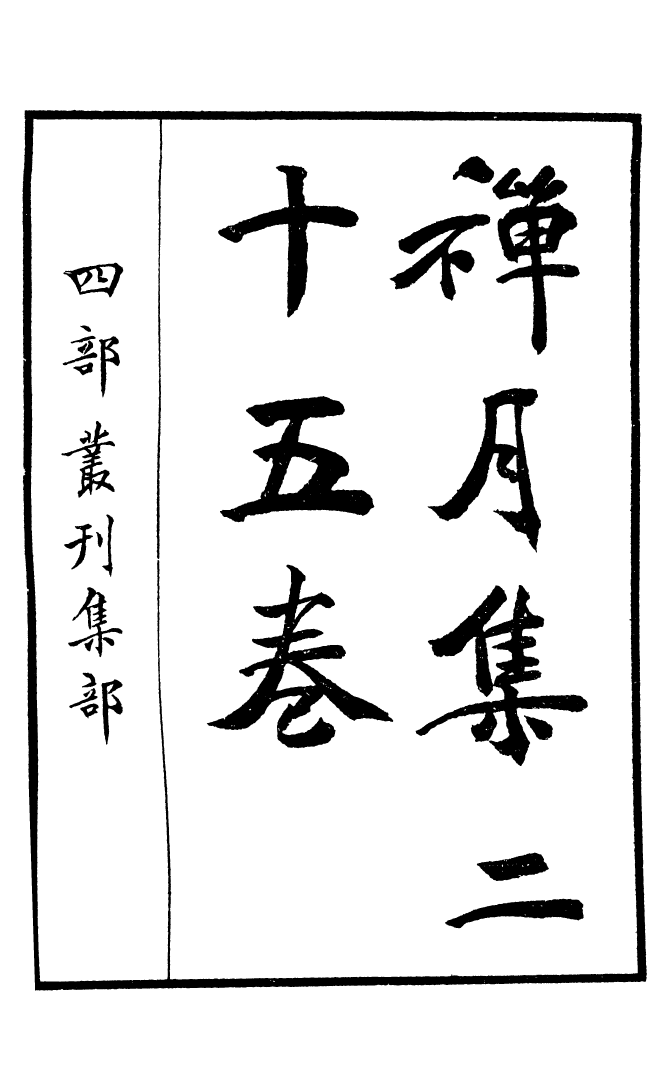 禪月集二
十五卷
四部叢刊集部